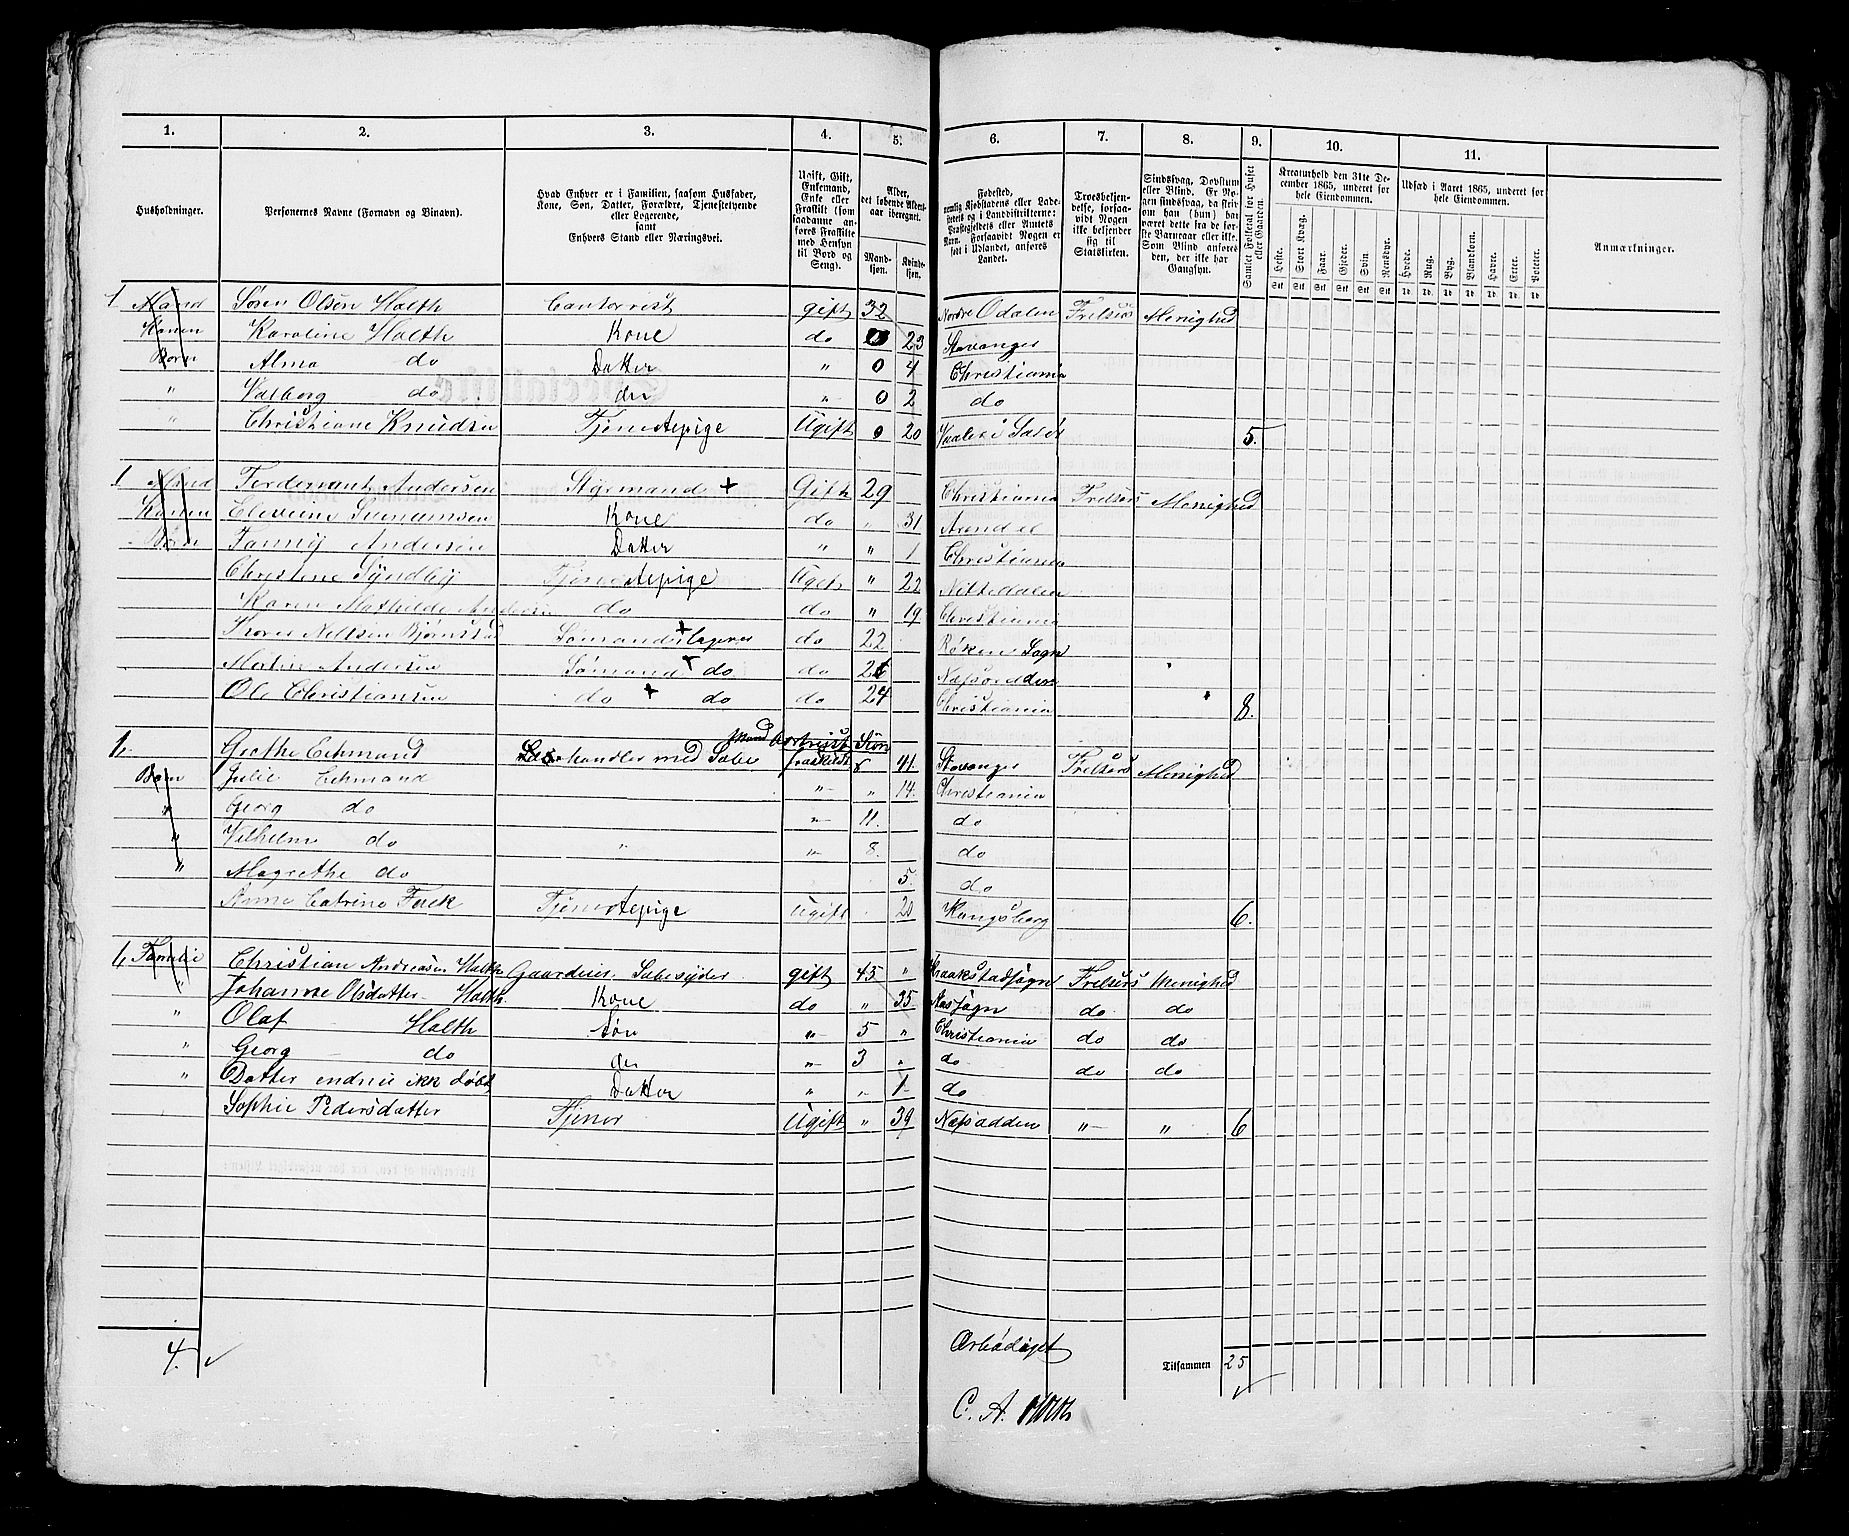 1. 2. 3. 4. 5. 6. 7. 8. 9. 10. 11.
Husholdninger.
Personernes Navne (Fornavn og Binavn).
Hvad Enhver er i Familien, saasom Husfader, Kone, Søn, Datter, Forældre, Tjenestetyende eller Logerende, samt Enhvers Stand eller Næringsvei.
Ugift, Gift, Enkemand, Enke eller Fraskilt (som saadanne anføres Fraskilte med Hensyn til Bord og Seng).
Alder, det løbende Alders-aar iberegnet.
Mand-kjøn. Kvinde-kjøn.
Fødested, nemlig Kjøbstadens eller Ladestedets og i Landdistrikterne: Præstegjeldets eller Annexets Navn. Forsaavidt Nogen er født i Udlandet, anføres Landet.
Troesbekjendelse, forsaavidt Nogen ikke bekjender sig til Statskirken.
Sindssvag, Døvstum eller Blind. Er Nogen sindssvag, da skriv om han (hun) har været dette fra de første Barneaar eller ikke. Som Blind anføres den, der ikke har Gangsyn.
Samlet Folketal for Huset eller Gaarden.
Kreaturhold den 31te December 1865, underet for hele Eiendommen.
Heste. Stort Kvæg. Faar. Gjeder. Svin. Rensdyr.
Stk Stk Stk Stk Stk Stk
Udsæd i Aaret 1865, underet for hele Eiendommen.
Hvede. Rug. Byg. Blandkorn. Havre. Erter. Poteter.
Td. Td. Td. Td. Td. Td. Td.
Anmærkninger.
1 Mand Søren Olsen Holth Contorrist gift 32 Nordre Odalen Frelsers Menighed
Konen Karoline Holth Kone do 0 23 Stavanger
Børn Alma do Datter " 0 4 Christiania
" Valborg do do " 0 2 do
" Christiane Knudsen Tjenestepige Ugift 0 20 Vaaler i 5.
1 Mand Andersen Styrmand + Gift 29 Christiania Frelsers Menighed
Konen Kone do " 31 Arendal
Børn Fanny Andersen Datter " " 1 Christiania
Christine Tjenestepige Ugift " 22 Nittedalen
Karen Mathilde Andersen do do " 19 Christiania
Sømand + logerer do 22 Røken Sogn
Martin Andersen Sømand + do do 26 Næsodden
Ole Christiansen do + do do 24 Christiania 8.
1. Grethe Lehmand handler med Sæbe fraskildt 41. Stavanger Frelsers Menighed
Børn Julie Lehmand " " 14. Christiania
" Georg do " 11. do
" Vilhelm do " " 8. do
" Magrethe do 5. do
Anne Catrine Falk Tjenestepige Ugift 20 Kongsberg 6.
1 Familie Christian Andreasen Holth Gaardeier. Sæbesyder gift 45 " Kraakstadsogn Frelsers Menighed
" Johanne Olsdatter Holth. Kone do " 35. Næssogn do do
" Olaf Holth Søn " 5 " Christiania do do
" Georg do do " 3 " do do do
" Datter endnu ikk døbt Datter " " 1 do
Sophie Pedersdatter Tjener Ugift " 39 Næsodden " " 6
4. Ærbødigst Tilsammen 25
C. A. Holth